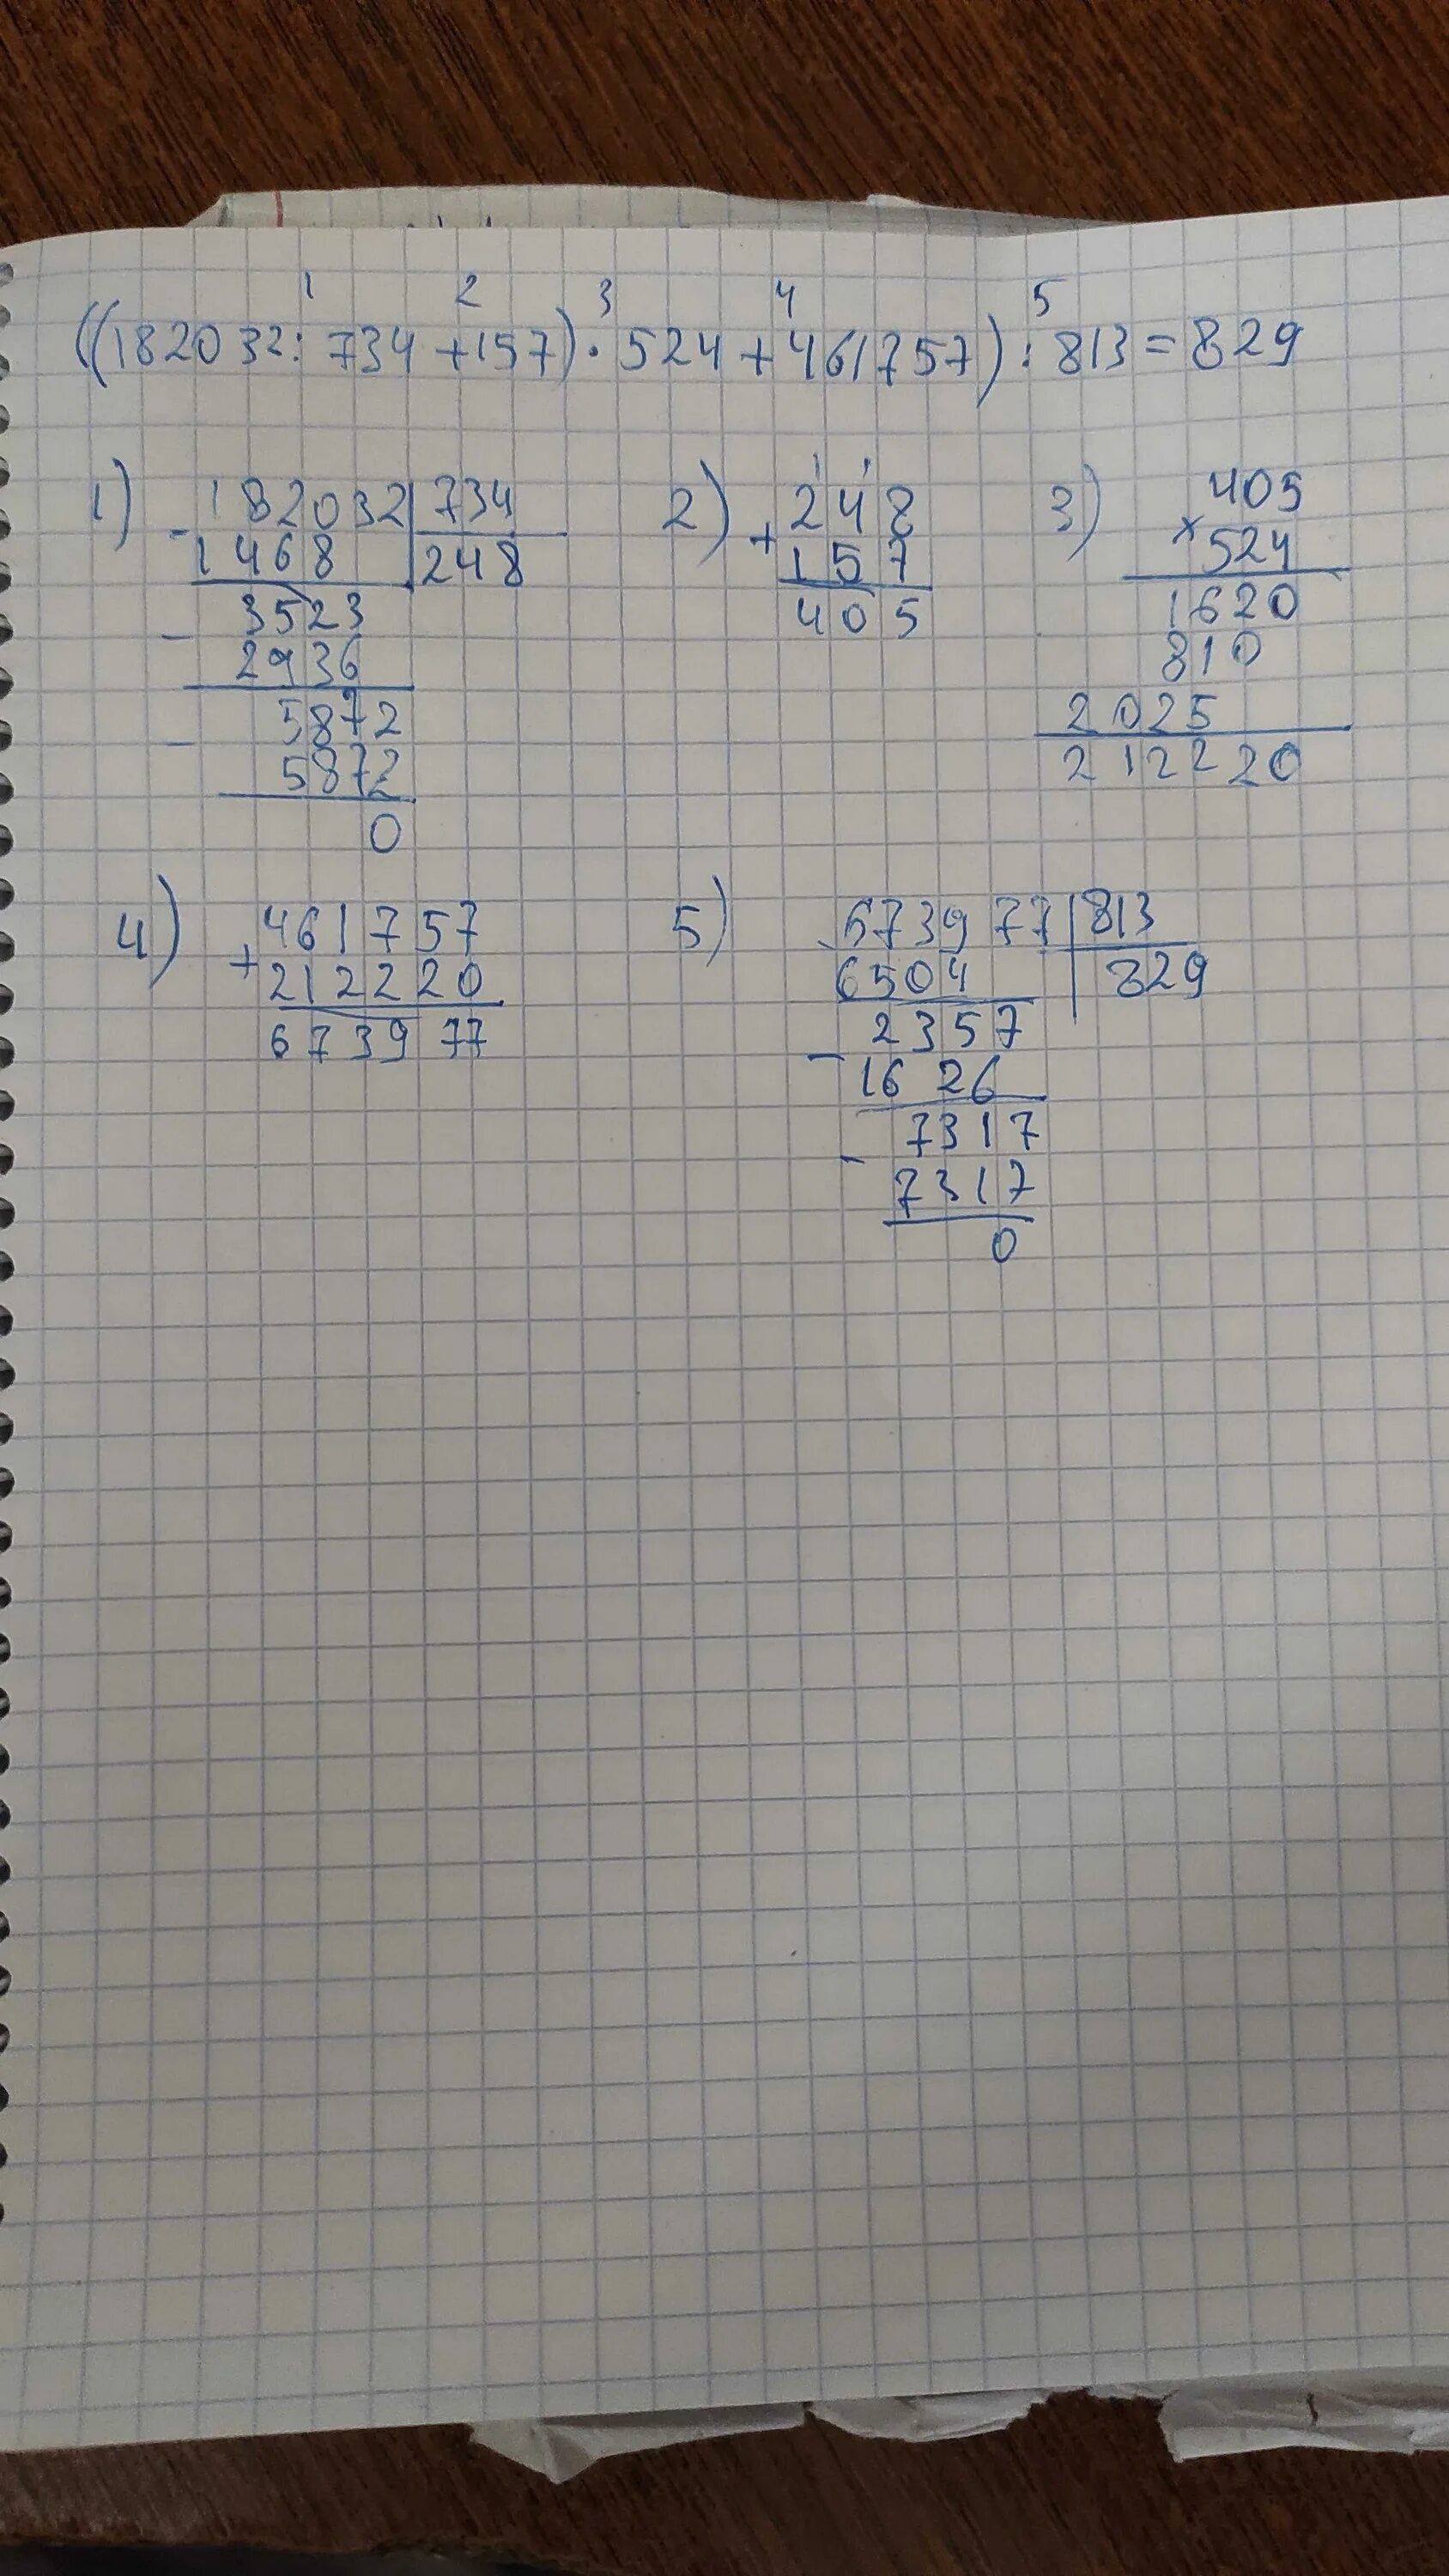 1 2 3 4 5
((182032 : 734 + 157) · 524 + 461757) : 813 = 829
1) - 182032 | 734
1468 | 248
- 3523
2936
- 5872
5872
0
2) 1 1
+ 248
157
405
3) 405
× 524
1620
810
2025
212220
4) 461757
+ 212220
673977
5) - 673977 | 813
6504 | 829
- 2357
1626
- 7317
7317
0